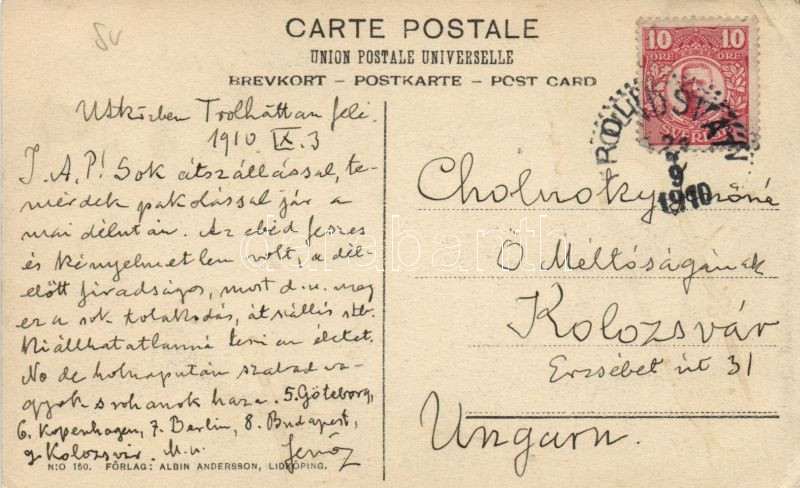 Su
CARTE POSTALE
UNION POSTALE UNIVERSELLE
BREVKORT – POSTKARTE – POST CARD
Útközben Trolhättan felé
1910 IX. 3
I. A. P! Sok átszállással, te-
mérdek pakolással jár a
mai délután. Az ebéd feszes
és kényelmetlen volt, a dél-
előtt fáradságos, most d. u. meg
ez a sok tolakodás, átszállás stb.
kiállhatatlanná teszi az életet.
No de holnapután szabad va-
gyok s rohanok haza. 5. Göteborg,
6. Kopenhagen, 7. Berlin, 8. Budapest,
9. Kolozsvár. M. u.
Jenőz
N:O 150. FÖRLAG: ALBIN ANDERSSON, LIDKÖPING.
10 10
ÖRE ÖRE
SVERIGE
9
1910
Cholnoky Jenőné
Ő Méltóságának
Kolozsvár
Erzsébet út 31
Ungarn.
darabanth